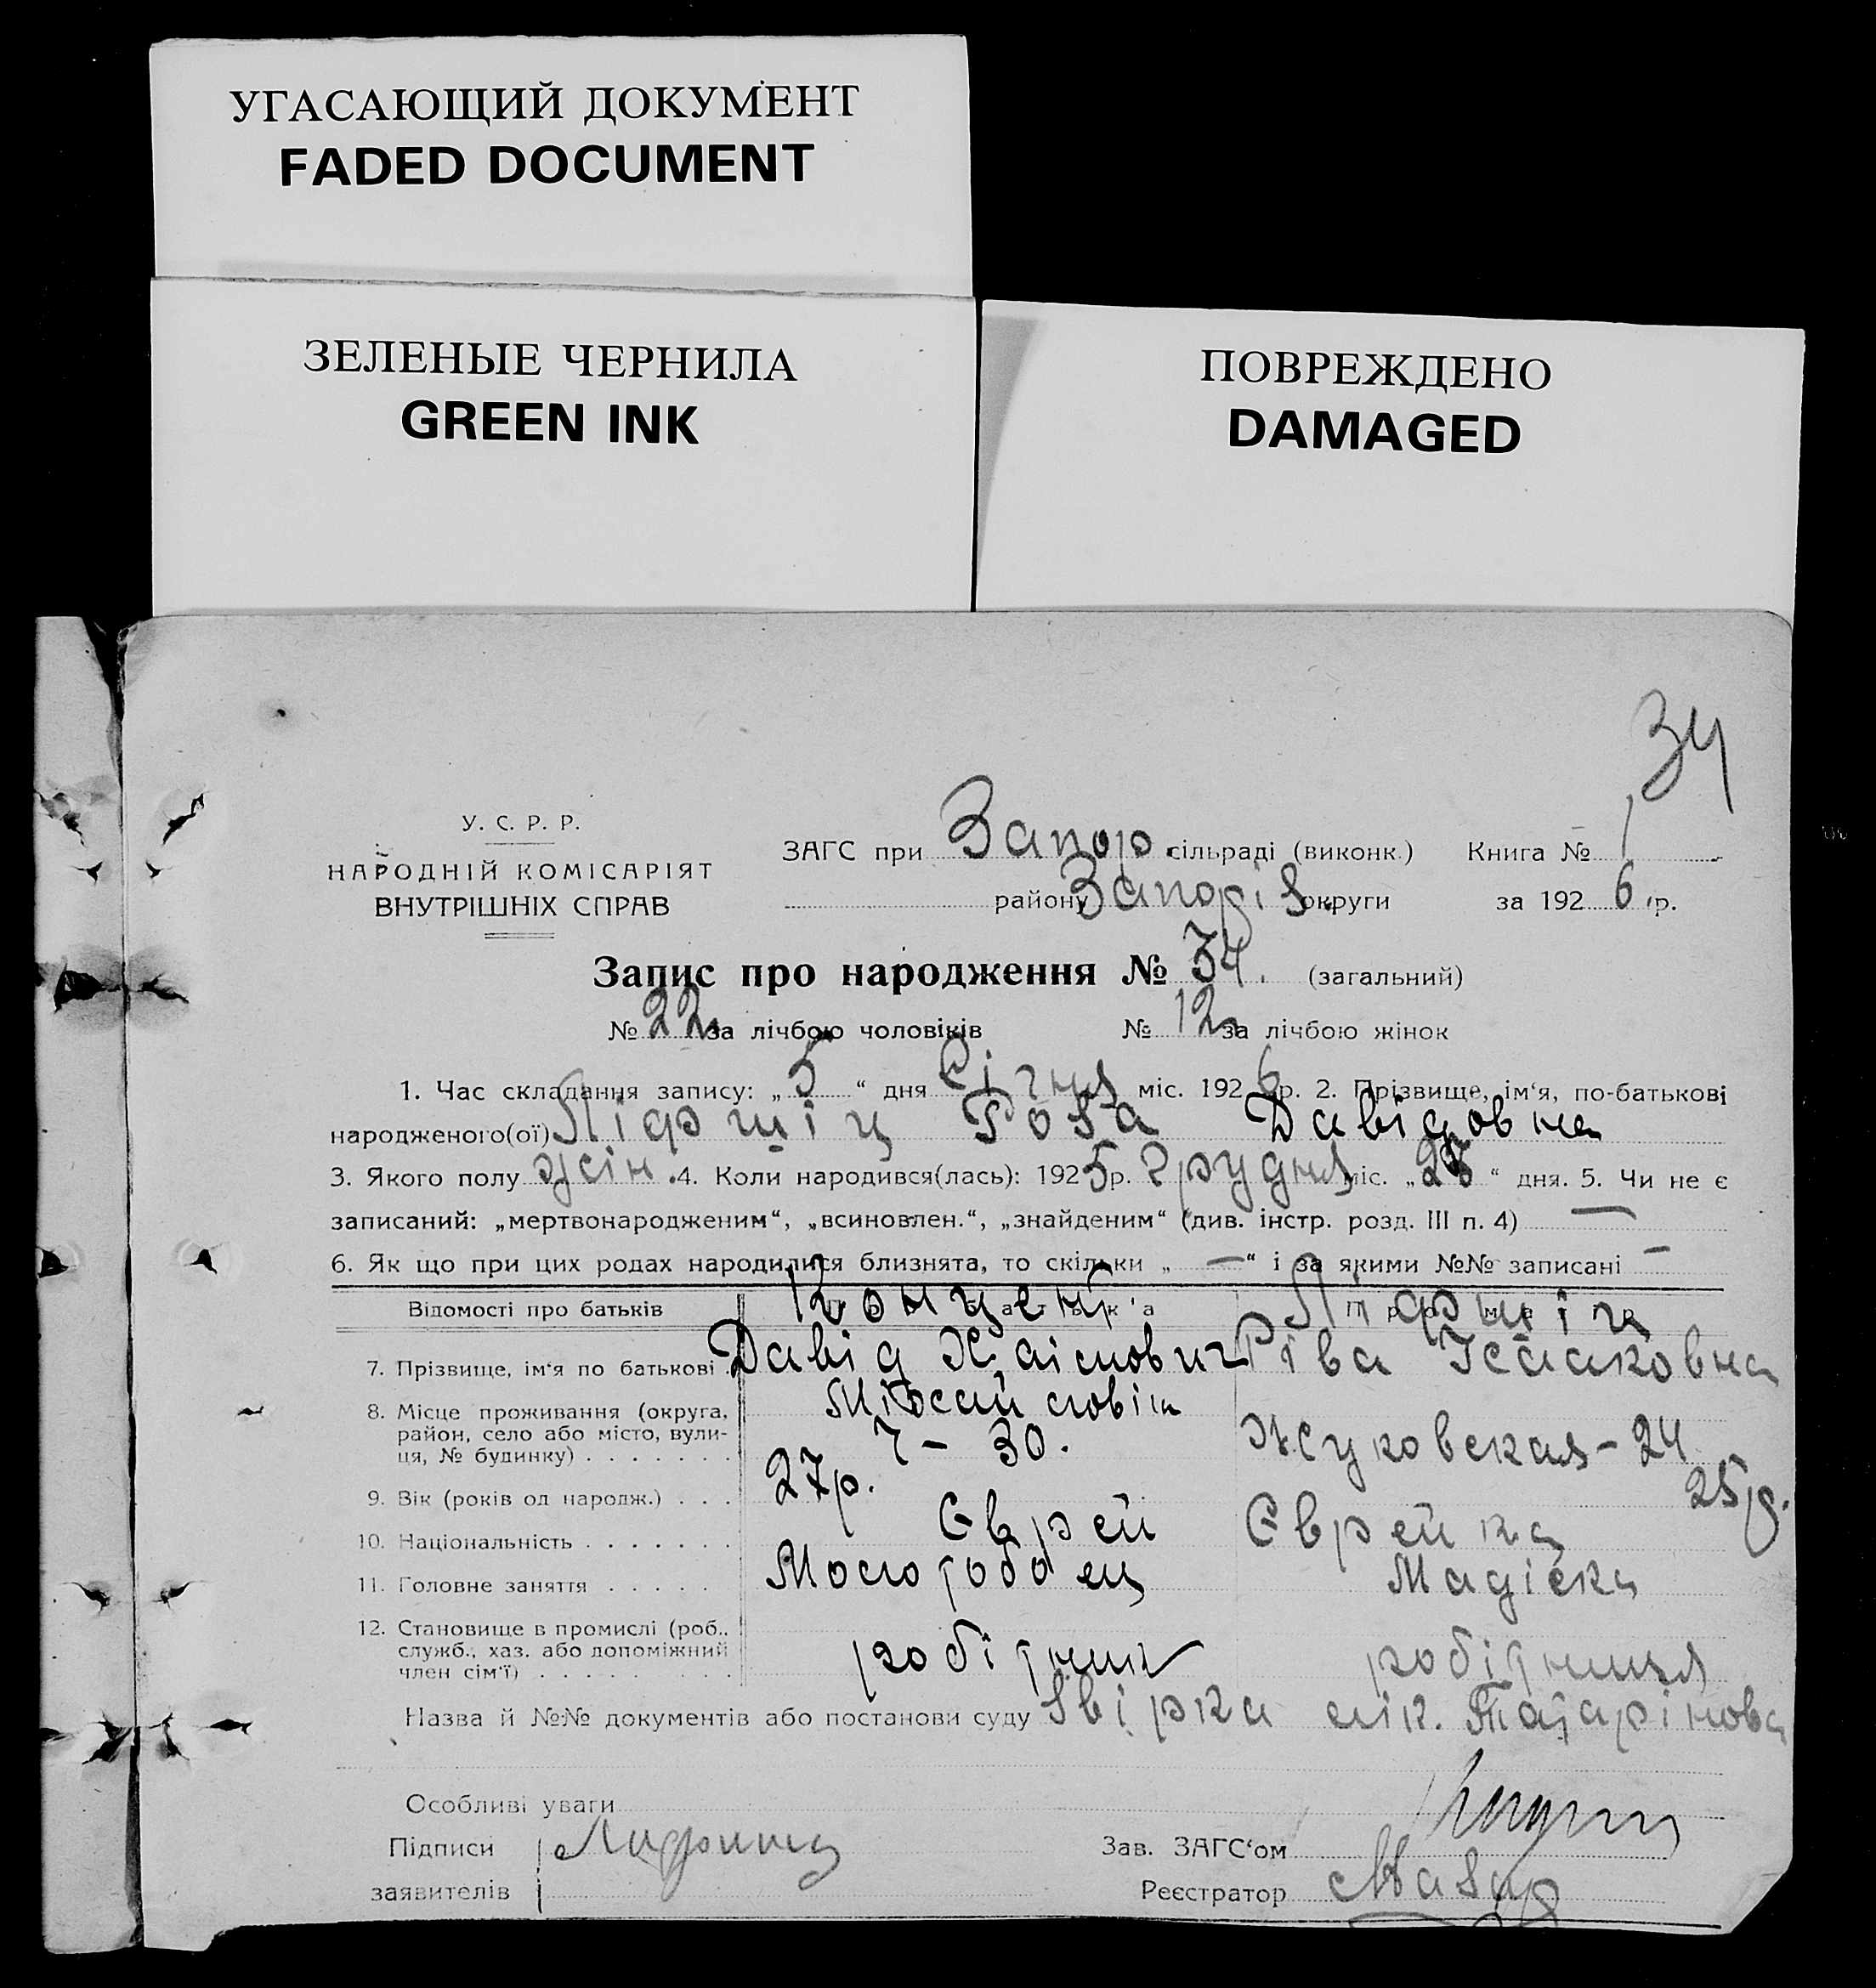 УГАСАЮЩИЙ ДОКУМЕНТ
FADED DOCUMENT
ЗЕЛЕНЫЕ ЧЕРНИЛА
GREEN INK
ПОВРЕЖДЕНО
DAMAGED
34
У. С. Р. Р.
НАРОДНІЙ КОМІСАРІЯТ
ВНУТРІШНІХ СПРАВ
ЗАГС при Запор. сільраді (виконк.) Книга № 1
району Запоріз. округи за 1926 р.
Запис про народження № 34. (загальний)
№ 22 за лічбою чоловіків № 12 за лічбою жінок
1. Час складання запису: „5“ дня Січня міс. 1926 р. 2. Прізвище, ім‘я, по-батькові
народженого(ої) Ліфшіц Роза Давідовна
3. Якого полу жін. 4. Коли народився(лась): 1925 р. Грудня міс. „28“ дня. 5. Чи не є
записаний: „мертвонародженим“, „всиновлен.“, „знайденим“ (див. інстр. розд. III п. 4) —
6. Як що при цих родах народилися близнята, то скільки „—“ і за якими №№ записані —
Відомості про батьків Ліфшіц
7. Прізвище, ім‘я по батькові Давід Хаімович Ріва Ісааковна
8. Місце проживання (округа,
район, село або місто, вули-
ця, № будинку) 7 – 30. Жуковская – 24
9. Вік (років од народж.) 27р. 25р.
10. Національність Єврей Єврейка
11. Головне заняття
12. Становище в промислі (роб.,
служб., хаз. або допоміжний
член сім‘ї) робітник робітниця
Назва й №№ документів або постанови суду Звірка лік. Татарінова
Особливі уваги
Підписи Лифшиц Зав. ЗАГС‘ом
заявителів Реєстратор